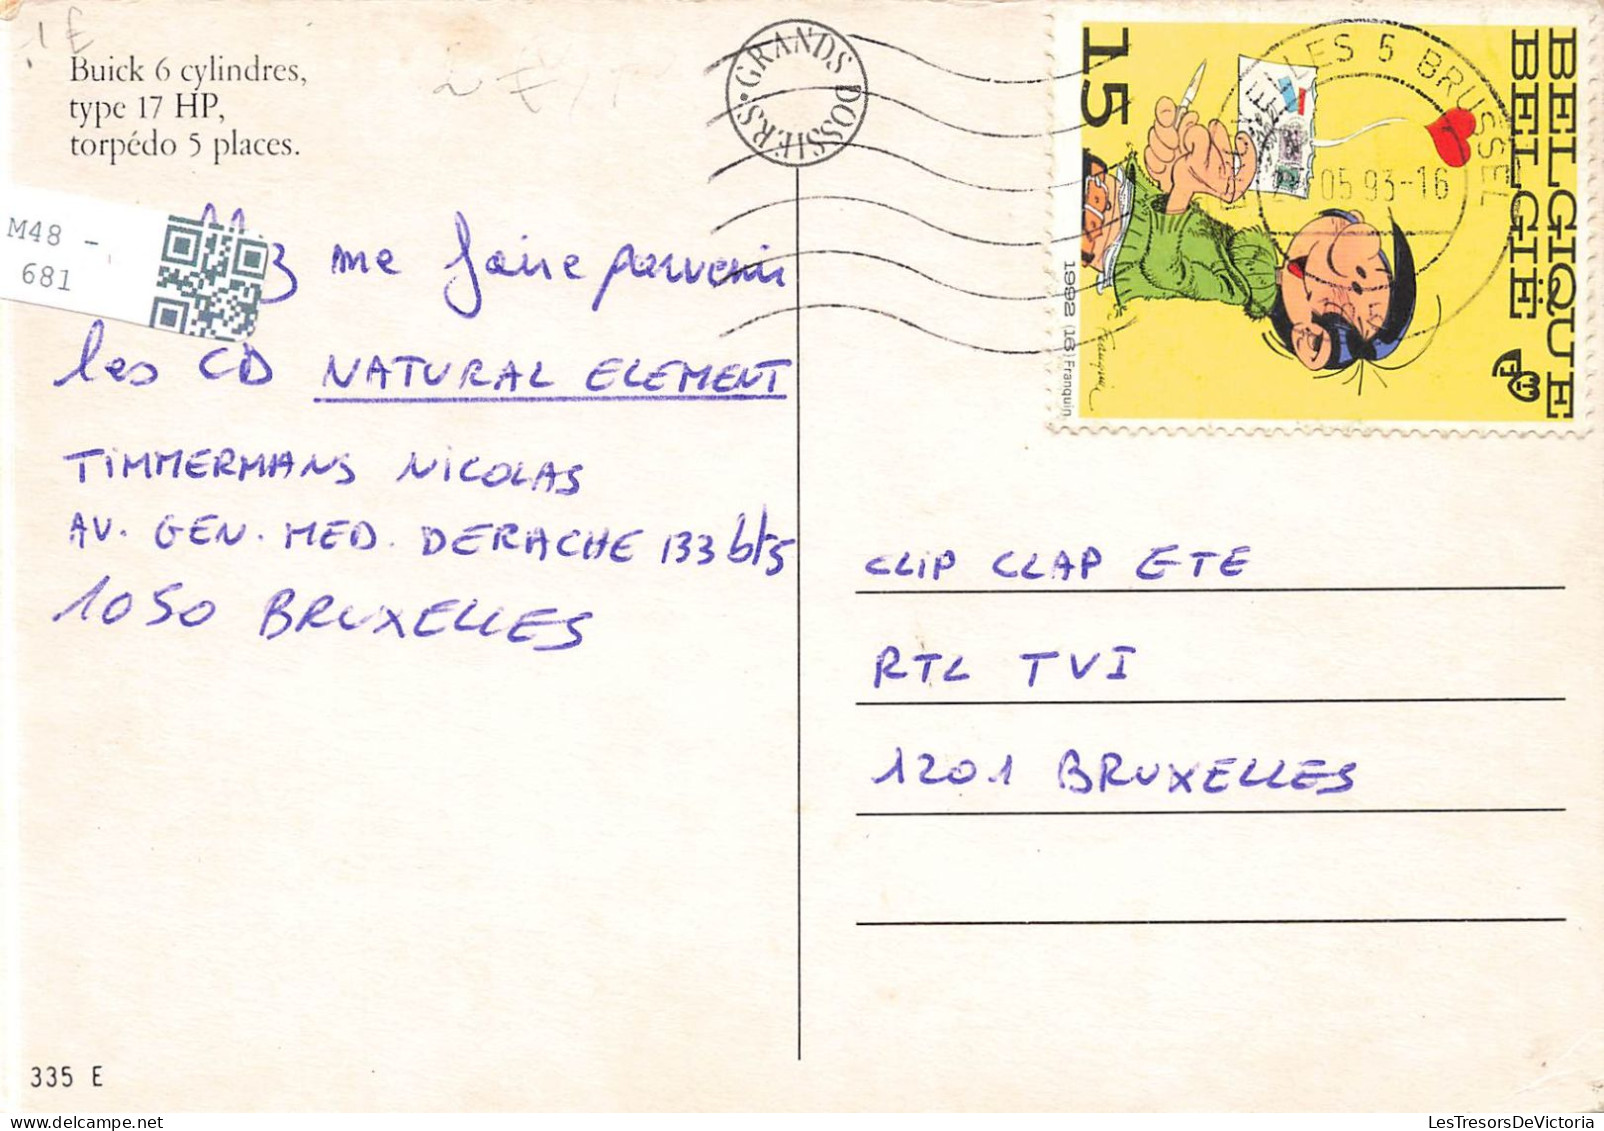 1 E
Buick 6 cylindres,
type 17 HP,
torpédo 5 places.
M48 -
681
me faire parvenir
les CD NATURAL ELEMENT
TIMMERMANS NICOLAS
AV. GEN. MED. DERACHE 133 bt5
1050 BRUXELLES
335 E
GRANDS DOSSIERS
BELGIQUE
BELGIË
15
1992 (16) Franquin
Franquin
LES 5 BRUSSEL
05 93-16
CLIP CLAP ETE
RTL TVI
1201 BRUXELLES
LesTresorsDeVictoria